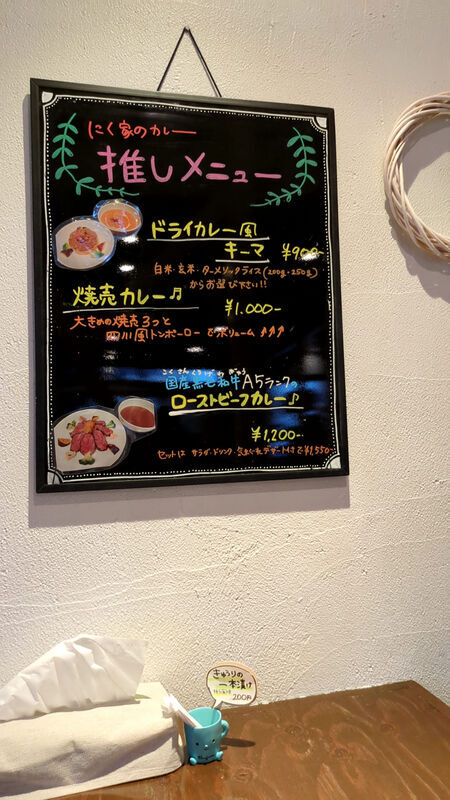 にく家のカレー
推しメニュー
ドライカレー風
キーマ ¥900-
白米・玄米・ターメリックライス(200g・250g)
からお選び下さい!!
焼売カレー♬
¥1.000-
大きめの焼売3つと
四川風トンポーローでボリューム↑↑↑
こくさんくろげわぎゅう
国産黒毛和牛A5ランクの
ローストビーフカレー♪
¥1,200-
セットは サラダ・ドリンク・気まぐれデザート付で¥1,550-
きゅうりの
一本漬け
200円